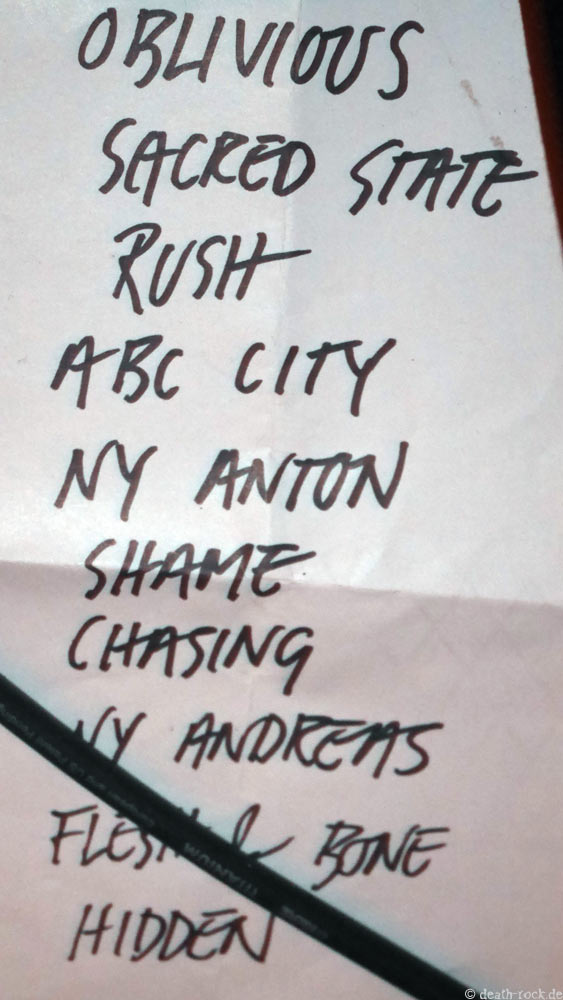 OBLIVIOUS
SACRED STATE
RUSH
ABC CITY
NY ANTON
SHAME
CHASING
NY ANDREAS
FLESH & BONE
HIDDEN
TITANIUM
© death-rock.de